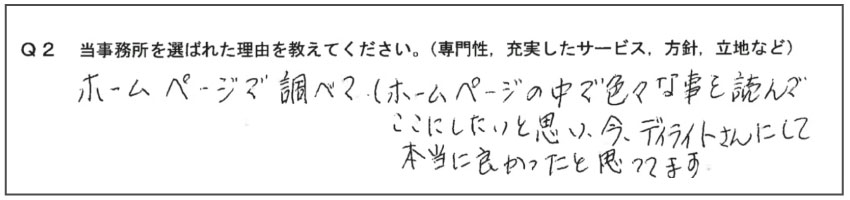 Q2 当事務所を選ばれた理由を教えてください。(専門性，充実したサービス，方針，立地など)
ホームページで調べて.(ホームページの中で色々な事を読んで
ここにしたいと思い、今、ディライトさんにして
本当に良かったと思ってます